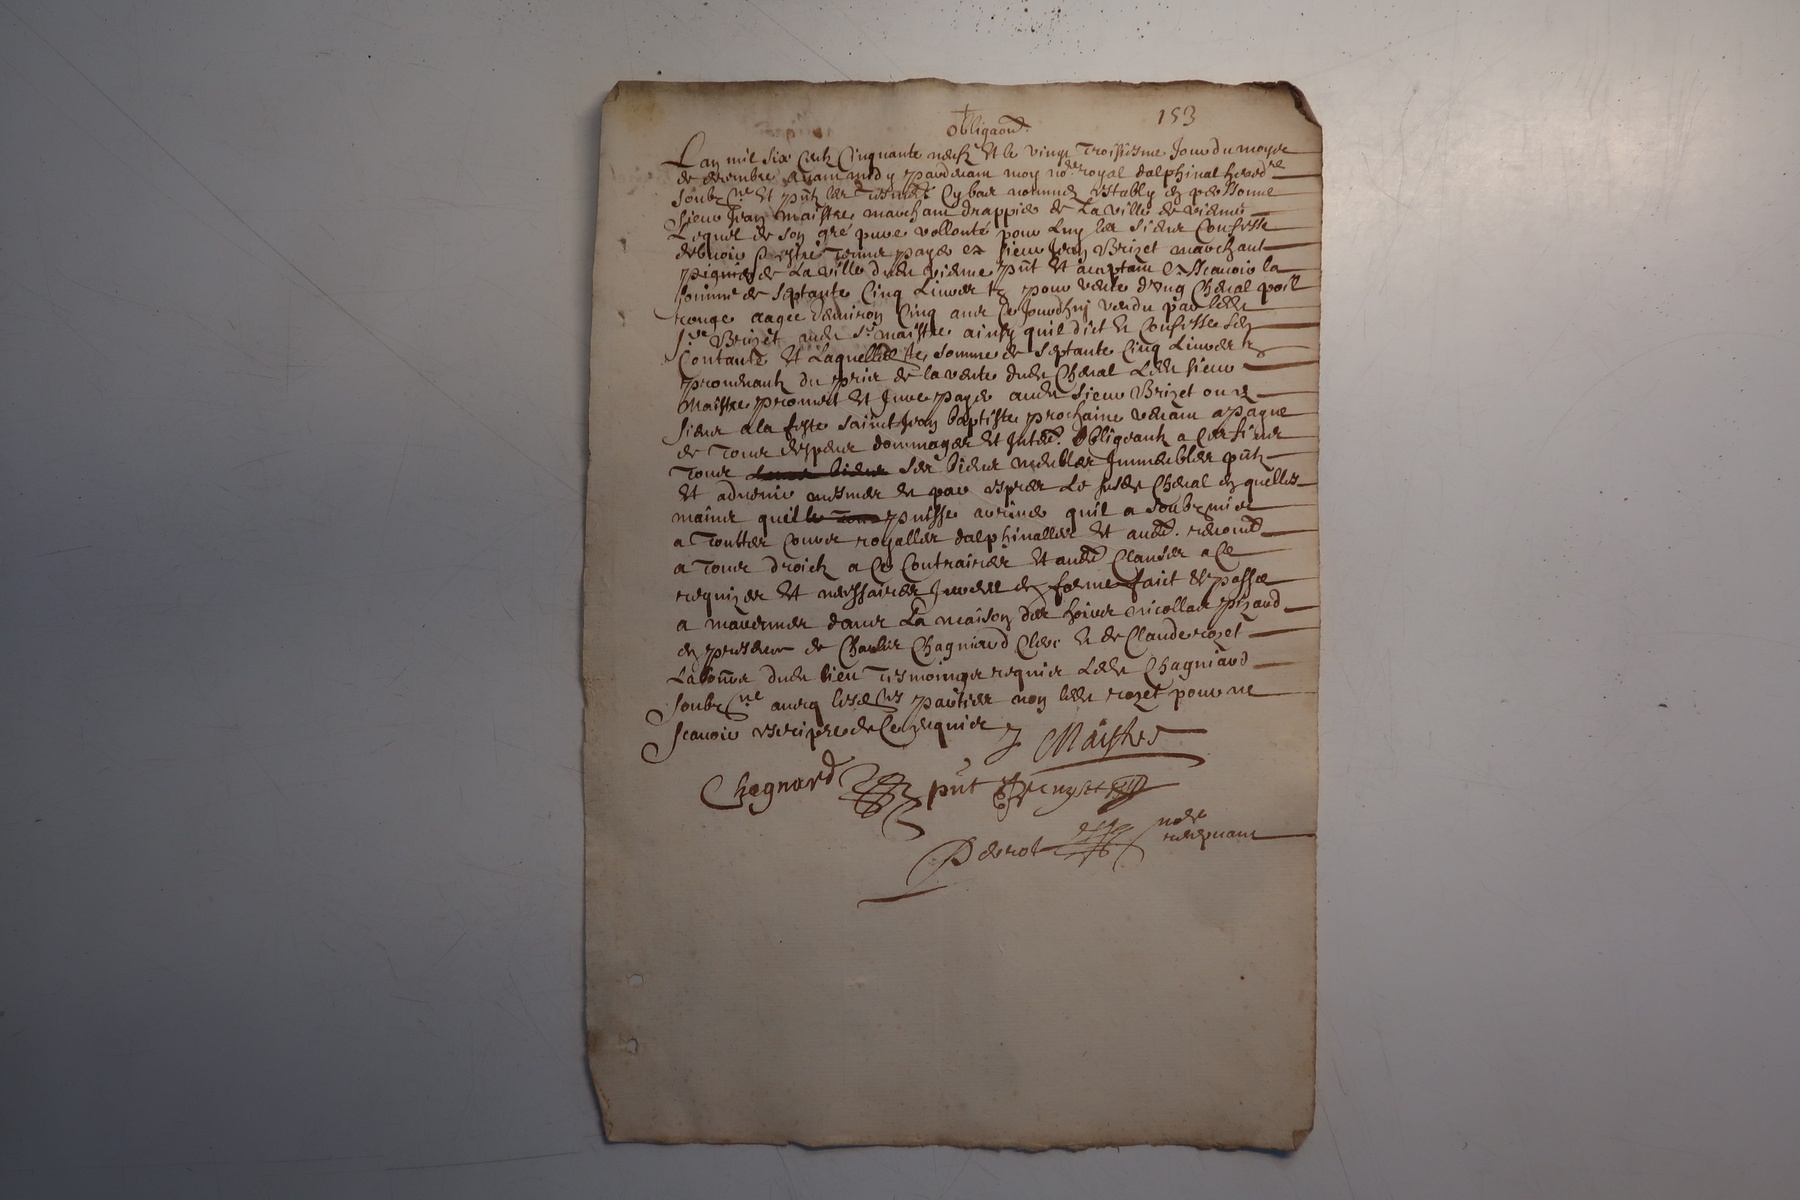 Obligaon̄
153
L'an mil six centz Cinquante neufz Et le vingt Troissiesme Jour du moys
de decembre avant midy pardevant moy no.re royal dalphinal
soubz.ne Et pn̄tz les tesmoins Cy bas nommez estably en personne
sieur Jean Maistre marchant drappier de La ville de vienne
Lequel de son gré pure vollonté pour luy les siens Confesse
debvoir Et estre tenu payer a sieur Jean Brizet marchant
de La ville dudt vienne pn̄t Et acceptant Assavoir la
somme de septante Cinq Livres tz pour vente d'ung Cheval poil
rouge aagee denviron Cinq ans Ce Jourdhuy vendu par ledt
s.r Brizet audt s.r maistre ainsy quil dict Et Confesse s'en
Contante Et Laquelle somme de septante Cinq Livres tz
provenantz du prix de la vente dudt Cheval Ledt sieur
Maistre promect Et Jure payer audt sieur Brizet ou es
siens a la feste sainct Jean baptiste prochaine venant a payne
de tous despens dommages Et Inter. Obligeantz a Ces fins
tous ses biens meubles Immeubles pn̄tz
Et advenir mesmes Et par exprez Le susdt Cheval en quelles
mains quil puisse arriver quil a soubzmis
a touttes Cours royalles dalphinalles Et aud. renond
a tous droictz a Ce Contraires Et aud Clauses a Ce
requizes Et necessaires en forme faict Et passé
a dans La maison des hoirs nicollas pizard
en presence de Charles Chagniard Clerc Et de Claude rozet
Labour dudt lieu tesmoings requis Ledt Chagniard
soubz.ne avecq lesd parties non ledt rozet pour ne
scavoir escripre de Ce enquis
J Maistre
Chagnard pn̄t
Perrot no.re
recepvant